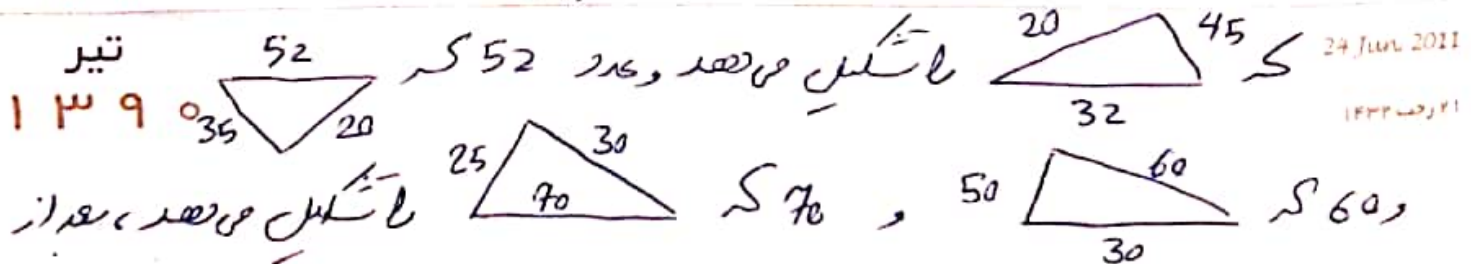 24 Jun. 2011
۲۱ رجب ۱۴۳۲
تیر
۱۳۹۰
که 20 45 32 را تشکیل می‌دهد و عدد 52 که 52 35 20
و 60 که 50 60 30 و 70 که 25 30 70 را تشکیل می‌دهد، بعد از